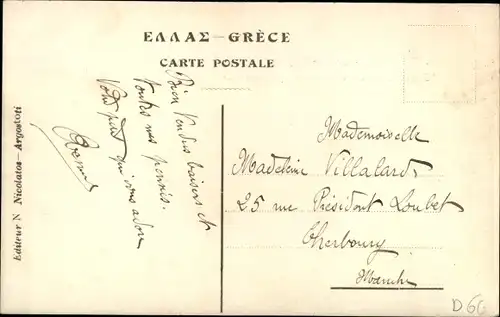 ΕΛΛΑΣ – GRÈCE
CARTE POSTALE
Bien tendres baisers et
toutes mes pensées.
Votre petit qui vous adore
Editeur N Nicolatos – Argostoti
Mademoiselle
Madeleine Villalard
25 rue Président Loubet
Cherbourg
Manche
D60